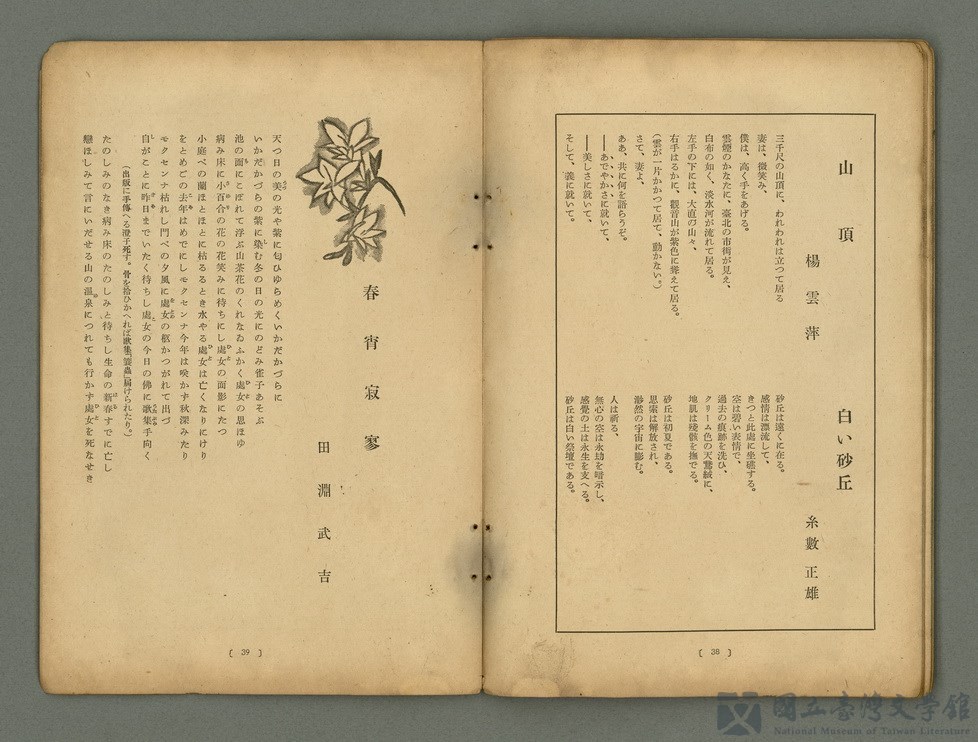 山頂
楊雲萍
三千尺の山頂に、われわれは立つて居る
妻は、微笑み、
僕は、高く手をあげる。
雲煙のかなたに、臺北の市街が見え、
白布の如く、淡水河が流れて居る。
左手の下には、大直の山々、
右手はるかに、觀音山が紫色に聳えて居る。
(雲が一片かかつて居て、動かない。)
さて、妻よ、
ああ、共に何を語らうぞ。
――あでやかさに就いて、
――美しさに就いて、
そして、義に就いて。
白い砂丘
糸數正雄
砂丘は遠くに在る。
感情は漂流して、
きつと此處に坐礁する。
空は碧い表情で、
過去の痕跡を洗ひ、
クリーム色の天鵞絨に、
地肌は殘骸を撫でる。
砂丘は初夏である。
思索は解放され、
渺然の宇宙に膨む。
人は祈る、
無心の空は永劫を暗示し、
感覺の土は永生を支へる。
砂丘は白い祭壇である。
[ 38 ]
春宵寂寥
田淵武吉
天つ日の美の光や紫に匂ひゆらめくいかだかづらに
いかだかづらの紫に染む冬の日の光にのどみ雀子あそぶ
池の面にこぼれて浮ぶ山茶花のくれなゐふかく處女の思ほゆ
病み床に小百合の花の花笑みに待ちにし處女の面影にたつ
小庭べの蘭ほとほとに枯るるとき水やる處女は亡くなりにけり
をとめごの去年はめでにしモクセンナ今年は咲かず秋深みたり
モクセンナ枯れし門べの夕風に處女の柩かつがれて出づ
自がことに昨日までいたく待ちし處女の今日の佛に歌集手向く
(出版に手傳へる澄子死す。骨を拾ひかへれば歌集「蓑蟲」屆けられたり。)
たのしみのなき病み床のたのしみと待ちし生命の新春すでに亡し
戀ほしみて言にいだせる山の溫泉につれても行かず處女を死なせき
[ 39 ]
國立臺灣文學館
National Museum of Taiwan Literature